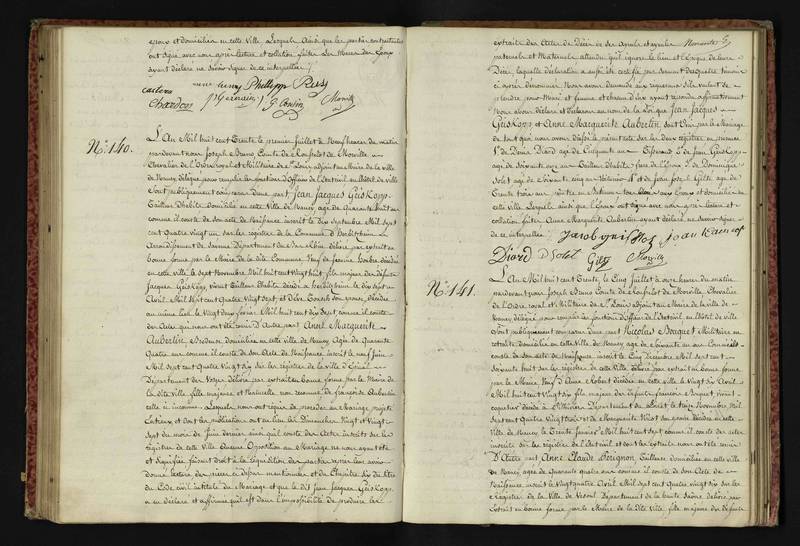 époux et domiciliés en cette Ville Lesquels Ainsi que les parties contractantes
ont signé avec nous après lecture et collation faites
ayant déclaré ne savoir signer de ce interpellée
Phillipp Reis
Chardons J Germain G Cousin Moreville
N.º 140.
L'An Mil huit cent Trente le premier Juillet à Neuf heures du matin
pardevant nous Joseph Bruno Comte de
Chevalier de l'Ordre royal et Militaire de S.t Louis adjoint au Maire de la ville
de Nancy délégué pour remplir les fonctions d'Officier de l'Etat civil en l'hôtel de ville
Sont publiquement comparus D'une part, Jean Jacques Geiskopp
Tailleur d'habits domicilié en cette Ville de Nancy âgé de Quarante huit ans
comme il conste de son acte de Naissance inscrit le dix Septembre Mil Sept
cent Quatre vingt un sur les registres de la Commune d'Herbitzheim
Arrondissement de Saverne Département du Bas Rhin délivré par extrait en
bonne forme par le Maire de la dite Commune, Veuf de
en cette ville le Sept Novembre Mil huit cent Vingt huit, fils majeur des défunts
Jacques Geiskopp, vivant Tailleur d'habits décédé à Herbitzheim le dix sept
Avril Mil Sept cent Quatre Vingt Sept, et d'Eve son épouse, décédée
au même lieu le Vingt deux février Mil huit cent dix Sept comme il conste
des Actes qui nous ont été remis D'Autre part Anne Marguerite
Aubertin, Brodeuse domiciliée en cette ville de Nancy Agée de Quarante
Quatre ans comme il conste de son Acte de Naissance inscrit le neuf Juin
Mil Sept cent Quatre Vingt Six sur les registres de la Ville d'Epinal
Département des Vosges délivré par extrait en bonne forme par le Maire de
la dite Ville fille majeure et Naturelle non reconnue de françoise Aubertin
celle ci inconnue. Lesquels nous ont requis de procéder au Mariage projeté
Entr'eux et dont les publications ont eu lieu les Dimanches Vingt et Vingt
Sept du mois de Juin dernier ainsi qu'il conste des Actes inscrits sur les
registres de cette Ville Aucune Opposition au Mariage ne nous ayant été
signifiée, faisant droit à la réquisition des parties après leur avoir
donné lecture des pièces ci dessus mentionnées et du Chapitre Six du titre
du Code civil intitulé du Mariage et que le dit Jean Jacques Geiskopp
a déclaré et affirmé qu'il est dans l'impossibilité de produire les
extraits des Actes de Décès de ses Ayeuls et ayeules
paternels et Maternels attendu qu'il ignore le lieu et l'époque de leurs
Décès, laquelle déclaration a aussi été certifiée par serment desquatre témoins
ci après dénommés Nous avons demandé aux requérans s'ils veulent se
prendre pour Mari et femme et chacun d'eux ayant répondu affirmativement
Nous avons déclaré et déclarons au nom de la Loi que Jean Jacques
Geiskopp et Anne Marguerite Aubertin, sont Unis par le Mariage
de tout quoi nous avons dressé la minute acte sur les deux registres en présence
S.r Denis Diard agé de Cinquante un
agé de soixante ans Tailleur d'habits S.r Dominique
Solet agé de soixante cinq ans et de Jean Joseph Gilti agé de
Trente trois ans domiciliés en
cette ville Lesquels ainsi que l'Epoux ont signé avec nous après lecture et
collation faites Anne Marguerite Aubertin ayant déclaré ne savoir signer
de ce interpellée
Diard D Solet Gilty
N.º 141.
L'An Mil huit cent Trente, le Cinq Juillet à onze heures du matin
pardevant nous Joseph Bruno Comte de Chevalier
de l'Ordre royal et Militaire de S.t Louis adjoint au Maire de la ville de
Nancy délégué pour remplir les fonctions d'Officier de l'Etat civil en l'hôtel de ville
Sont publiquement comparus D'une part Nicolas Bocquet Militaire en
retraite domicilié en cette Ville de Nancy agé de Soixante un ans Comme il
conste de son acte de Naissance inscrit le Cinq Décembre Mil Sept cent
Soixante huit sur les registres de cette Ville délivré par extrait en bonne forme
par le Maire Veuf d'Anne Robert décédée en cette ville le Vingt Six Avril
Mil huit cent Vingt Six fils majeur des défunts francois Bocquet vivant
décédé à Département du Loiret le treize Novembre Mil
Sept cent Quatre Vingt treize et de Marguerite son épouse décédée en cette
Ville de Nancy le Trente Janvier Mil huit cent Sept comme il conste des actes
inscrits sur les registres de l'Etat civil et dont les extraits nous ont été remis
D'Autre part Anne Claude Perrignon, Tailleuse domiciliée en cette ville
de Nancy agée de Quarante quatre ans comme il conste de son Acte de
Naissance inscrit le Vingt quatre Avril Mil Sept cent Quatre vingt Six sur les
registres de la Ville de Vesoul Département de la haute Saône délivré par
Extrait en bonne forme par le Maire de la dite Ville, fille majeure des défunts